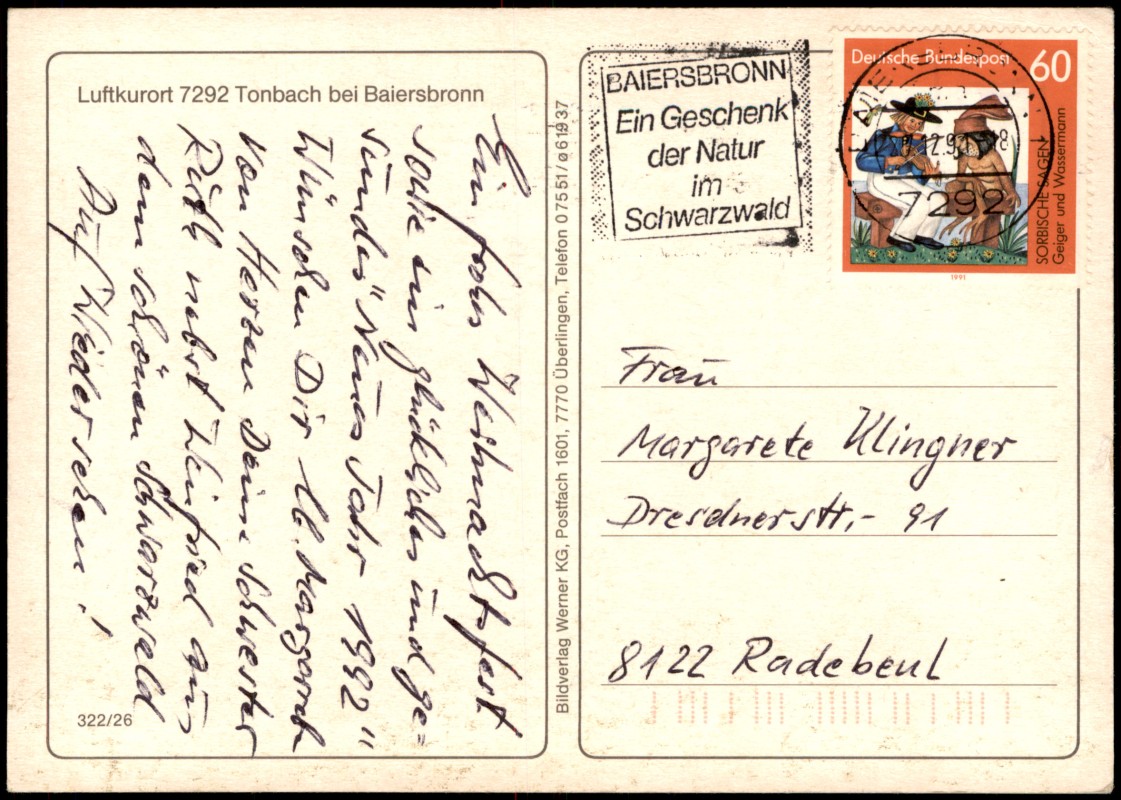 Luftkurort 7292 Tonbach bei Baiersbronn
Ein frohes Weihnachtsfest
sowie ein glückliches und ge=
sundes "Neues Jahr 1992"
Wünschen Dir lb. Margarete
von Herzen Deine Schwester
Ruth nebst Winfried aus
dem schönen Schwarzwald
Auf Wiedersehen!
322/26
Bildverlag Werner KG, Postfach 1601, 7770 Überlingen, Telefon 07551/61937
BAIERSBRONN
Ein Geschenk
der Natur
im
Schwarzwald
Deutsche Bundespost 60
SORBISCHE SAGEN
Geiger und Wassermann
1991
7292
Frau
Margarete Klingner
Dresdnerstr.- 91
8122 Radebeul